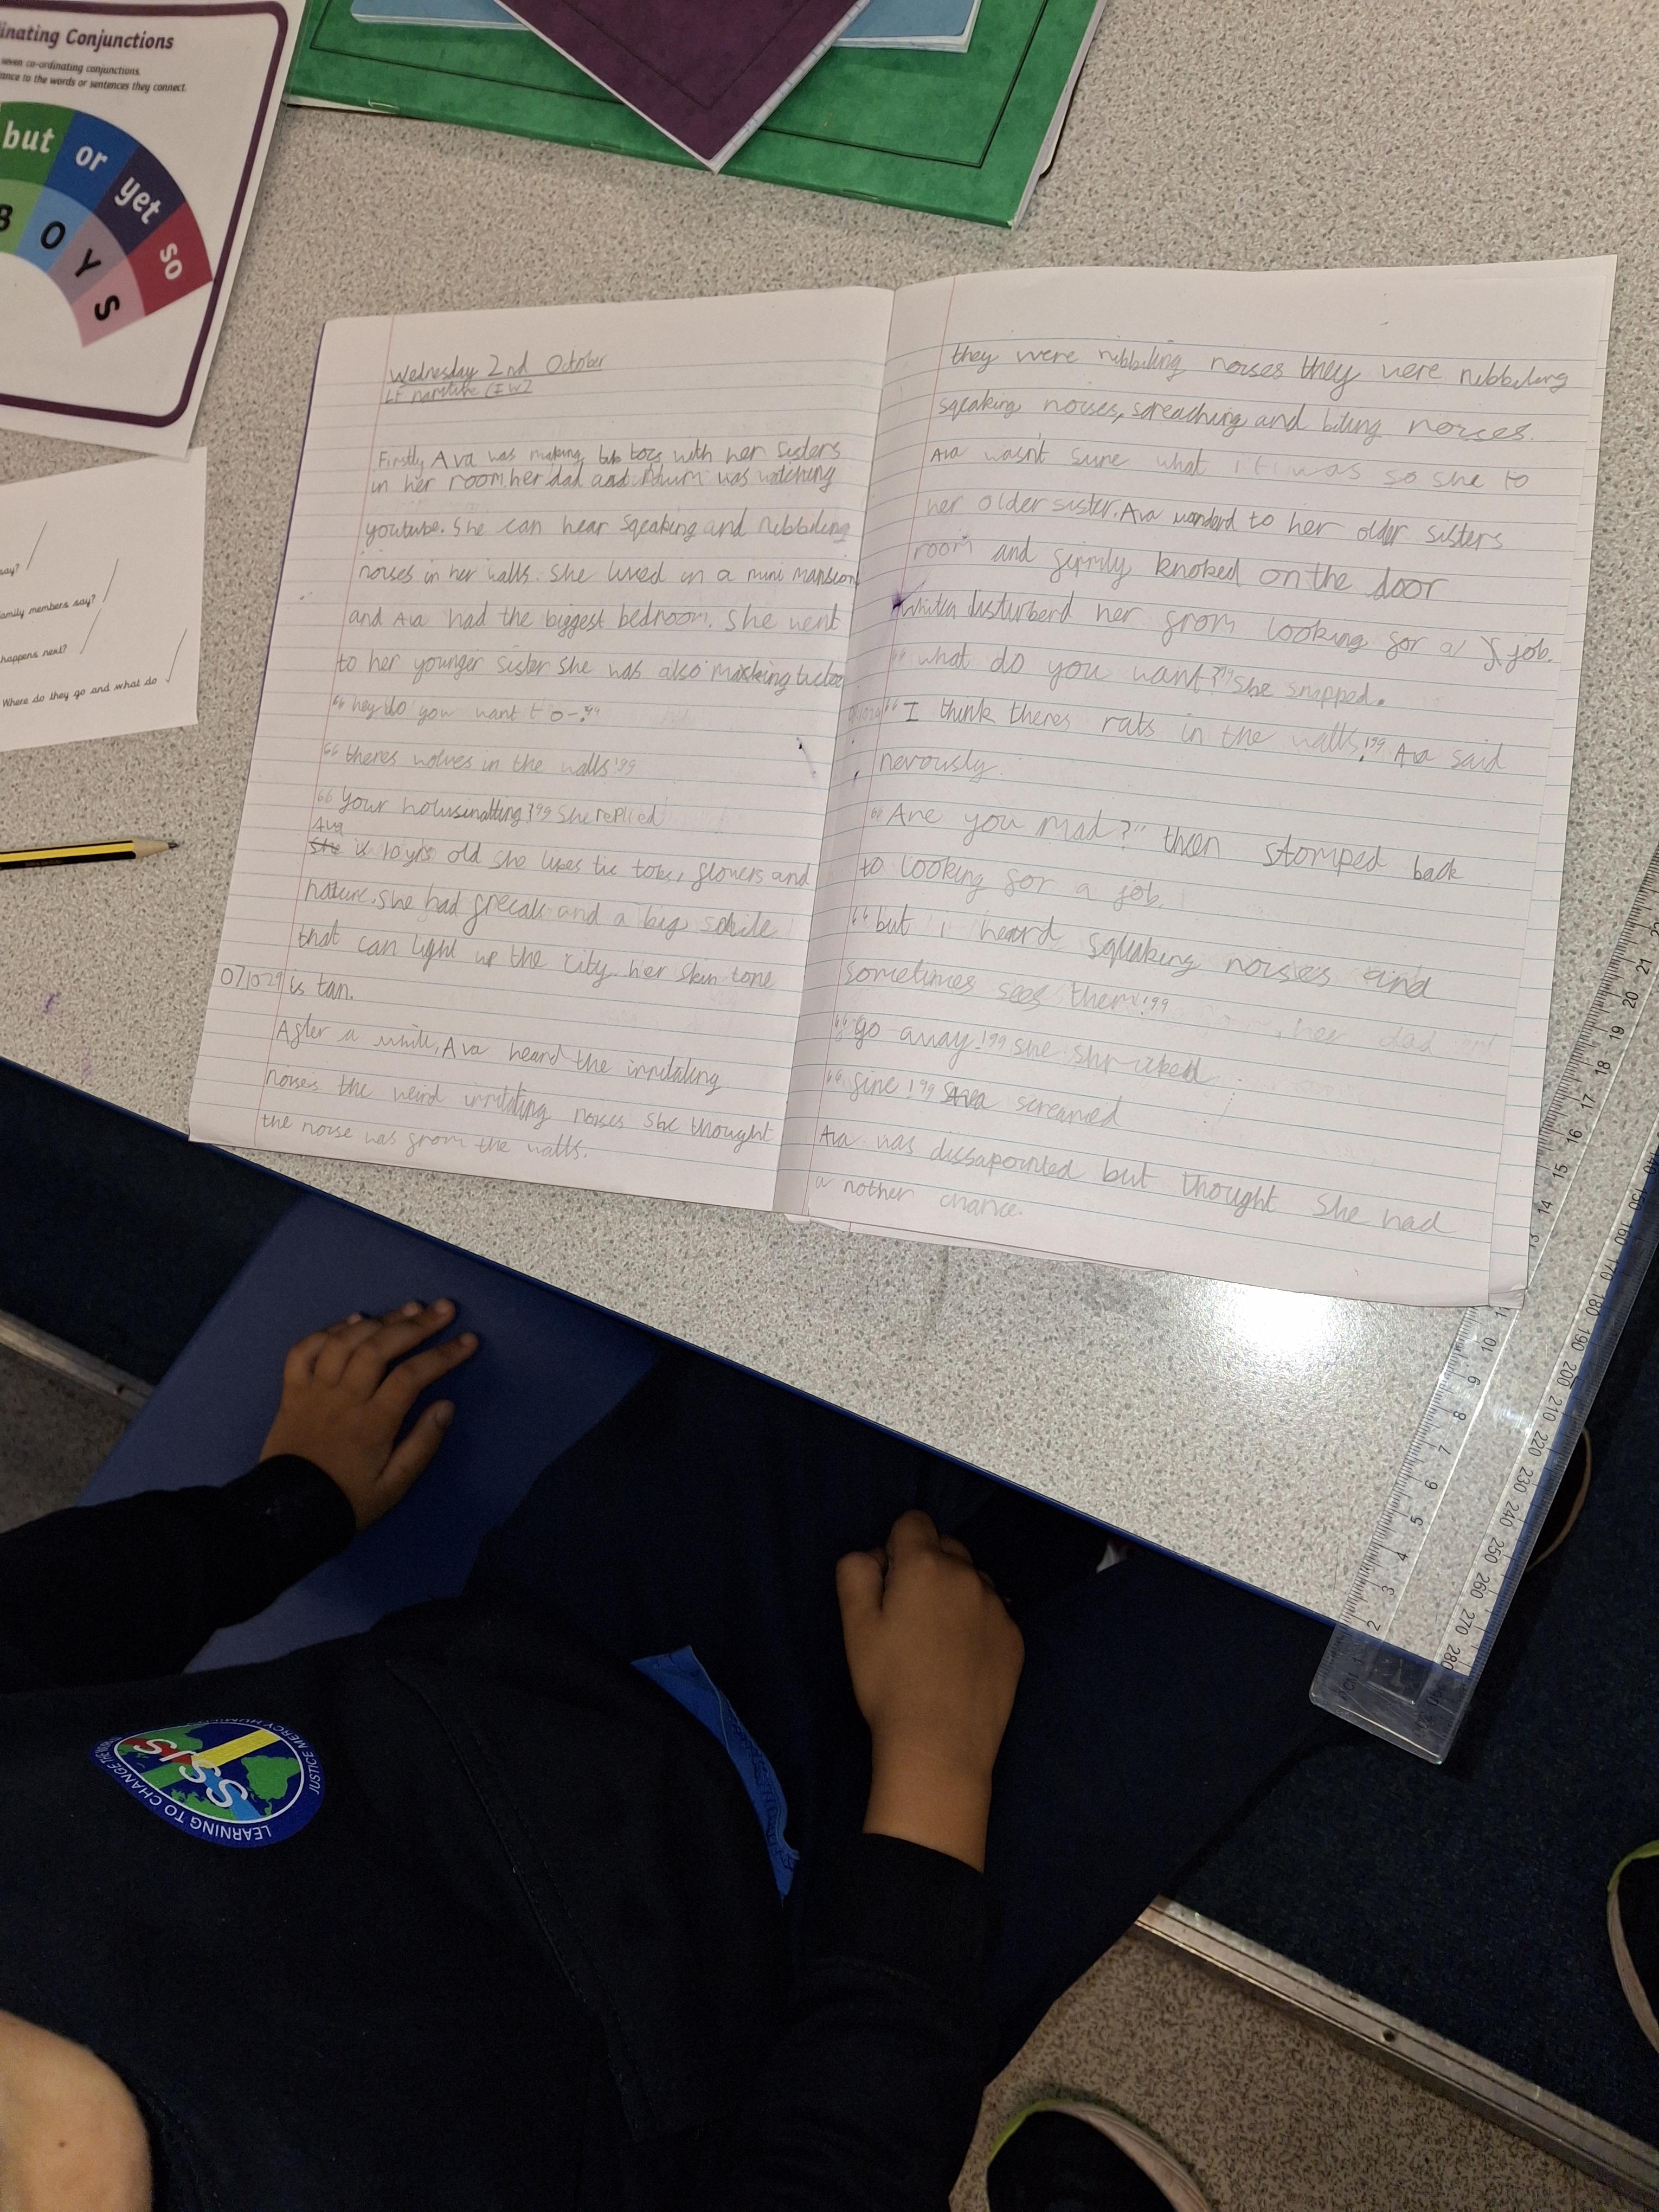 inating Conjunctions
seven co-ordinating conjunctions.
ance to the words or sentences they connect.
but or yet so
B O Y S
say?
family members say?
happens next?
Where do they go and what do
Wednesday 2nd October
LF narritive (IW)
Firstly, Ava was making tik tocs with her sisters
in her room, her dad and Mum was watching
youtube. She can hear sqeaking and nibbileing
noises in her walls. She lived in a mini mansion
and Ava had the biggest bedroom. She went
to her younger sister she was also making
"hey do you want to-"
"theres wolves in the walls!"
"Your she replied
Ava
She is 10 yrs old she likes tic toks, flowers and
nature. She had and a big smile
that can light up the city. her skin tone
071024 is tan.
After a while, Ava heard the irritating
noises the weird irritating noises she thought
the noise was from the walls.
they were nibbileing noises they were nibbileing
sqeaking noises, screaching and biting noises.
Ava wasn't sure what it was so she to
her older sister. Ava wanderd to her older sisters
room and firmily knoked on the door
disturberd her from looking for a job.
"what do you want?" She snapped.
"I think theres rats in the walls!" Ava said
nervously.
"Are you mad?" then stomped back
to looking for a job.
"but i heard sqeaking noises and
sometimes sees them!"
"go away!" she shrieked
"fine!" Ava screamed
Ava was dissapointed but thought She had
a nother chance.
LEARNING TO CHANGE THE WORLD
JUSTICE MERCY
SJSS
1 2 3 4 5 6 7 8 9 10 11 13 14 15 16 17 18 19 20 21
140 150 160 170 180 190 200 210 220 230 240 250 260 270 280